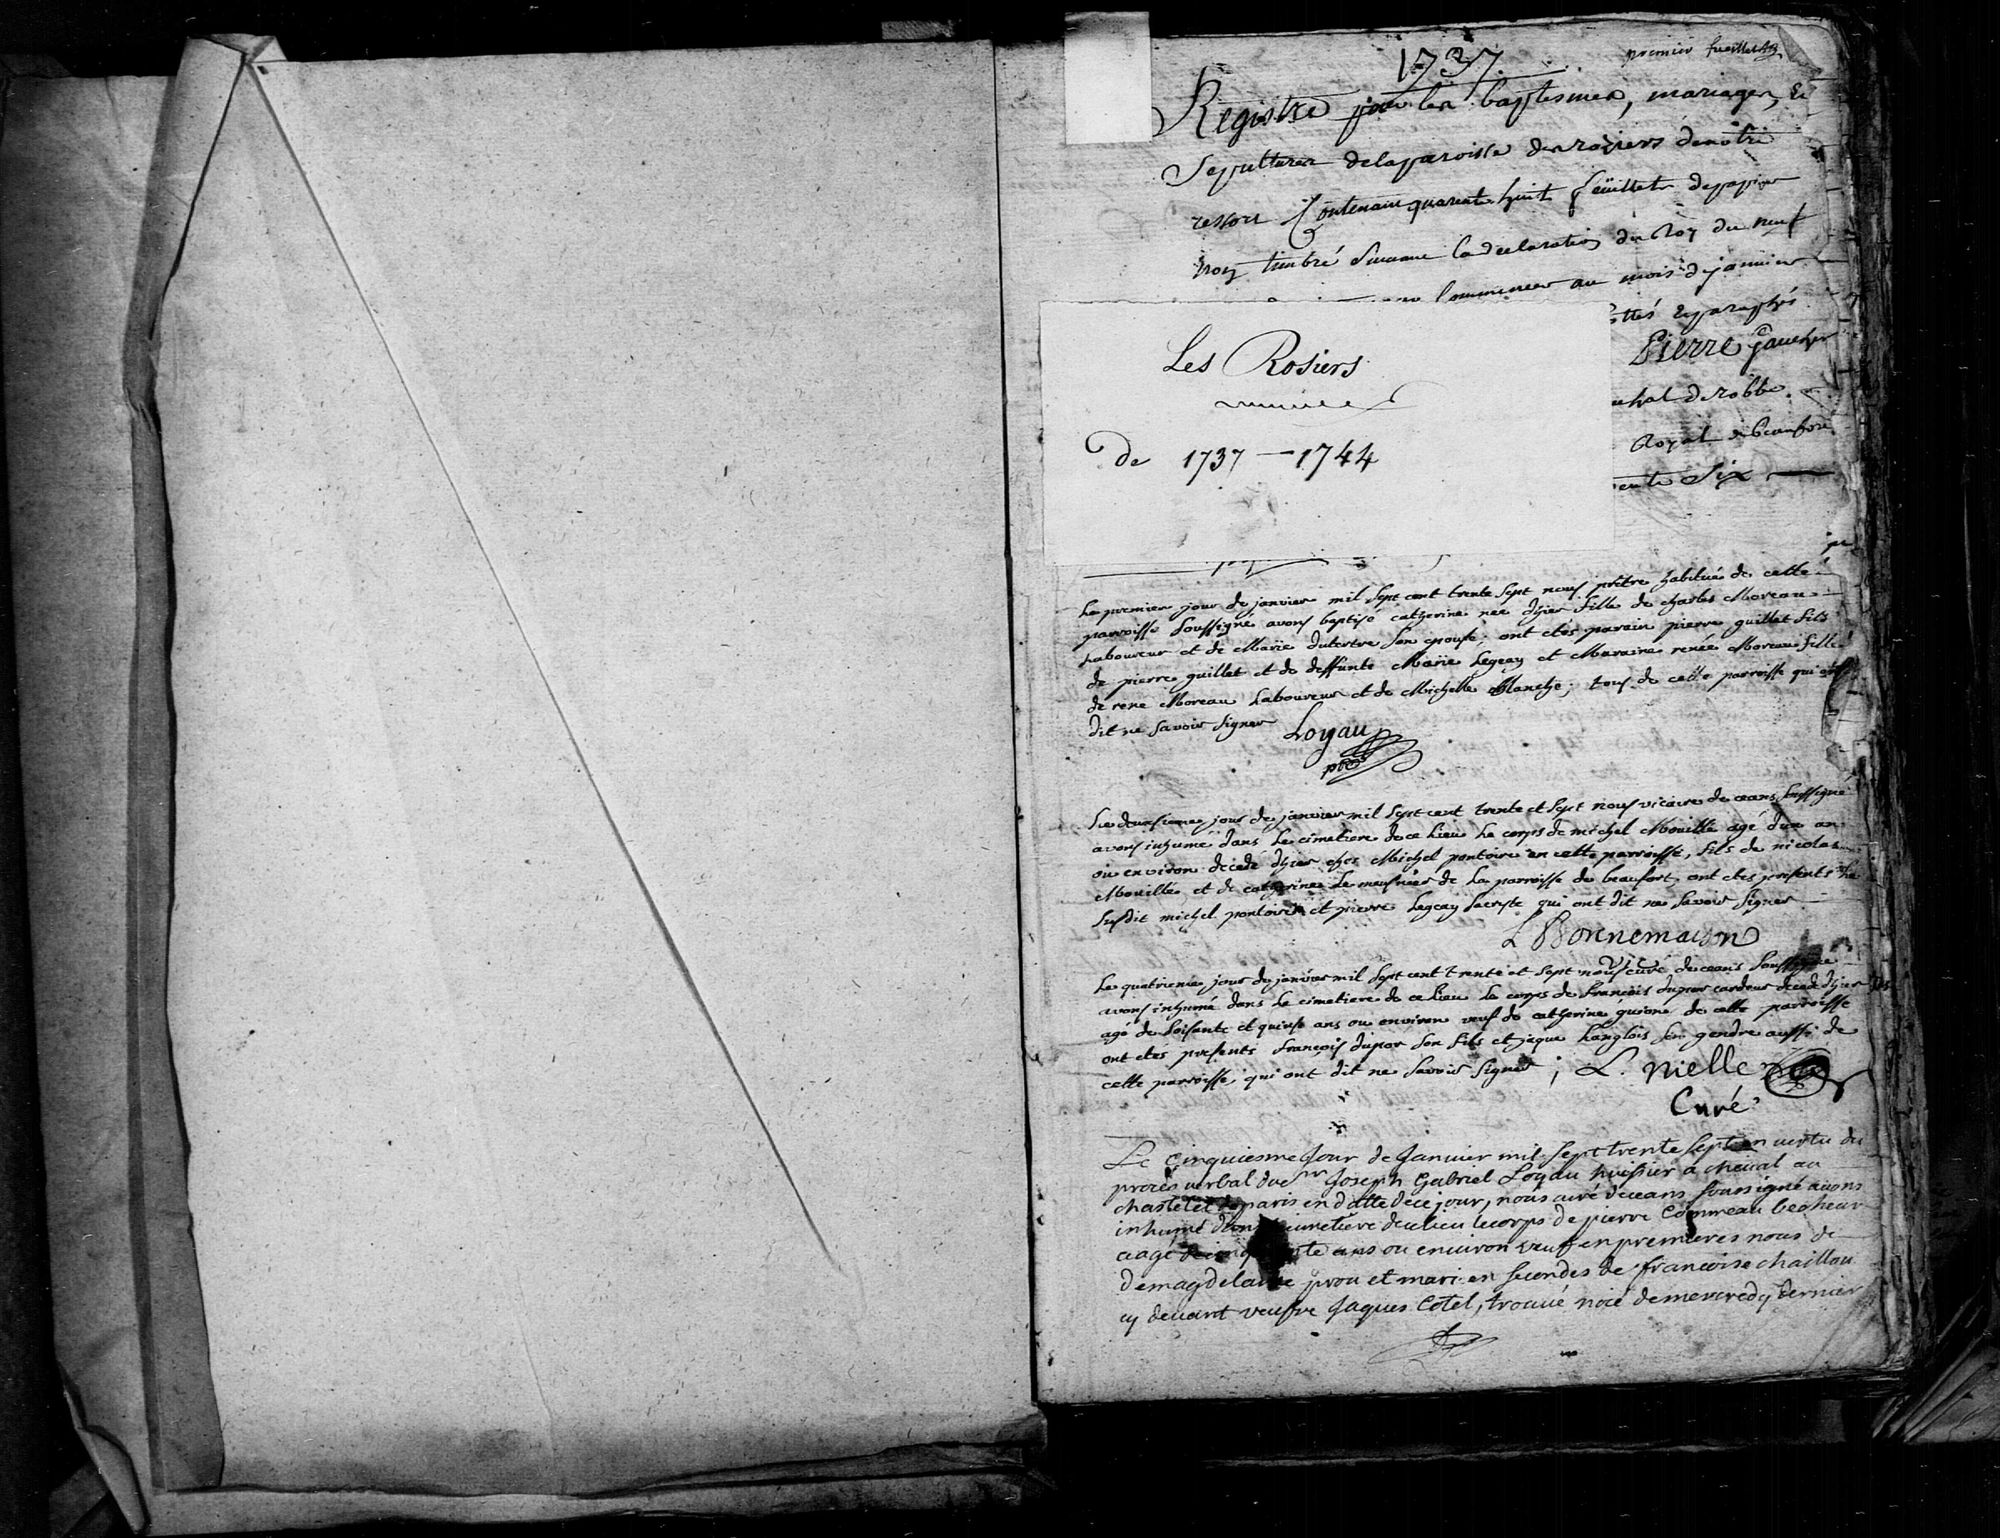 premier feuillet
1737
Registre pour les baptesmes, mariages, Et
Sepultures delaparoisse desroziers denotre
ressort Contenant quarente huit feüillets depapier
non timbré Suivant la declaration du Roy du neuf
Commencer au mois de janvier
cottés Eparaphés
Pierre gaucher
Royal de beaufort
ente Six
Les Rosiers
de 1737 — 1744
Le premier jour de janvier mil sept cent trente sept nous prêtre habitué de cette
parroisse soussigné avons baptisé catherine née d'hier fille de charles Moreau
Laboureur et de Marie dutertre son epouse; ont etés parain pierre guillet fils
de pierre guillet et de deffunte Marie Legeay et Maraine renée Moreau fille
de rene Moreau Laboureur et de Michelle Blanche; tous de cette parroisse qui ont
dit ne savoir signer Loyau
pbre
Le deuxieme jour de janvier mil sept cent trente et sept nous vicaire de ceans soussigné
avons inhumé dans le cimetiere de ce lieu le corps de michel Mouillé agé d'un an
ou environ decedé d'hier chez Michel pontoire en cette parroisse, fils de nicolas
Mouillé et de catherine Le meusnier de La parroisse de beaufort, ont etes presents le
susdit michel pontoire et pierre Legeay sacriste qui ont dit ne savoir signer
L Bonnemaison
vic
Le quatrieme jour de janvier mil sept cent trente et sept nous curé de ceans soussigné
avons inhumé dans le cimetiere de ce lieu le corps de François dupor cardeur decedé d'hier
agé de soisante et quinse ans ou environ veuf de catherine guione de cette parroisse
ont etés presents françois dupor son fils et jaque Langlois son gendre aussi de
cette parroisse, qui ont dit ne savoir signer; L. Nielle
Curé
Le cinquiesme Jour de Janvier mil sept trente sept en vertu du
procès verbal du sr Joseph Gabriel Loyau huissier à cheval au
chastelet de paris en datte de ce jour, nous curé de ceans soussigné avons
inhumé dans le cimetière de ce lieu le corps de pierre Commeau becheur
aagé de cinquante ans ou environ veuf en premieres nous de
De magdelaine prou et mari en secondes de françoise chaillou
cy devant veufve Jaques Cotel, trouvé noié de mercredy dernier